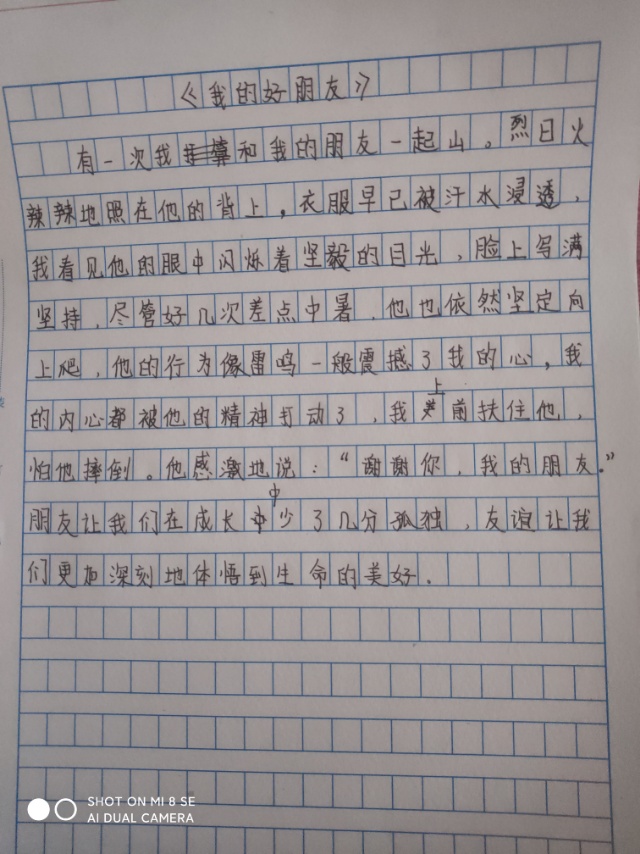 《我的好朋友》
有一次我和我的朋友一起山。烈日火
辣辣地照在他的背上，衣服早已被汗水浸透，
我看见他的眼中闪烁着坚毅的目光，脸上写满
坚持，尽管好几次差点中暑，他也依然坚定向
上爬，他的行为像雷鸣一般震撼了我的心，我
的内心都被他的精神打动了，我上前扶住他，
怕他摔倒。他感激地说：“谢谢你，我的朋友。”
朋友让我们在成长中少了几分孤独，友谊让我
们更加深刻地体悟到生命的美好.
SHOT ON MI 8 SE
AI DUAL CAMERA